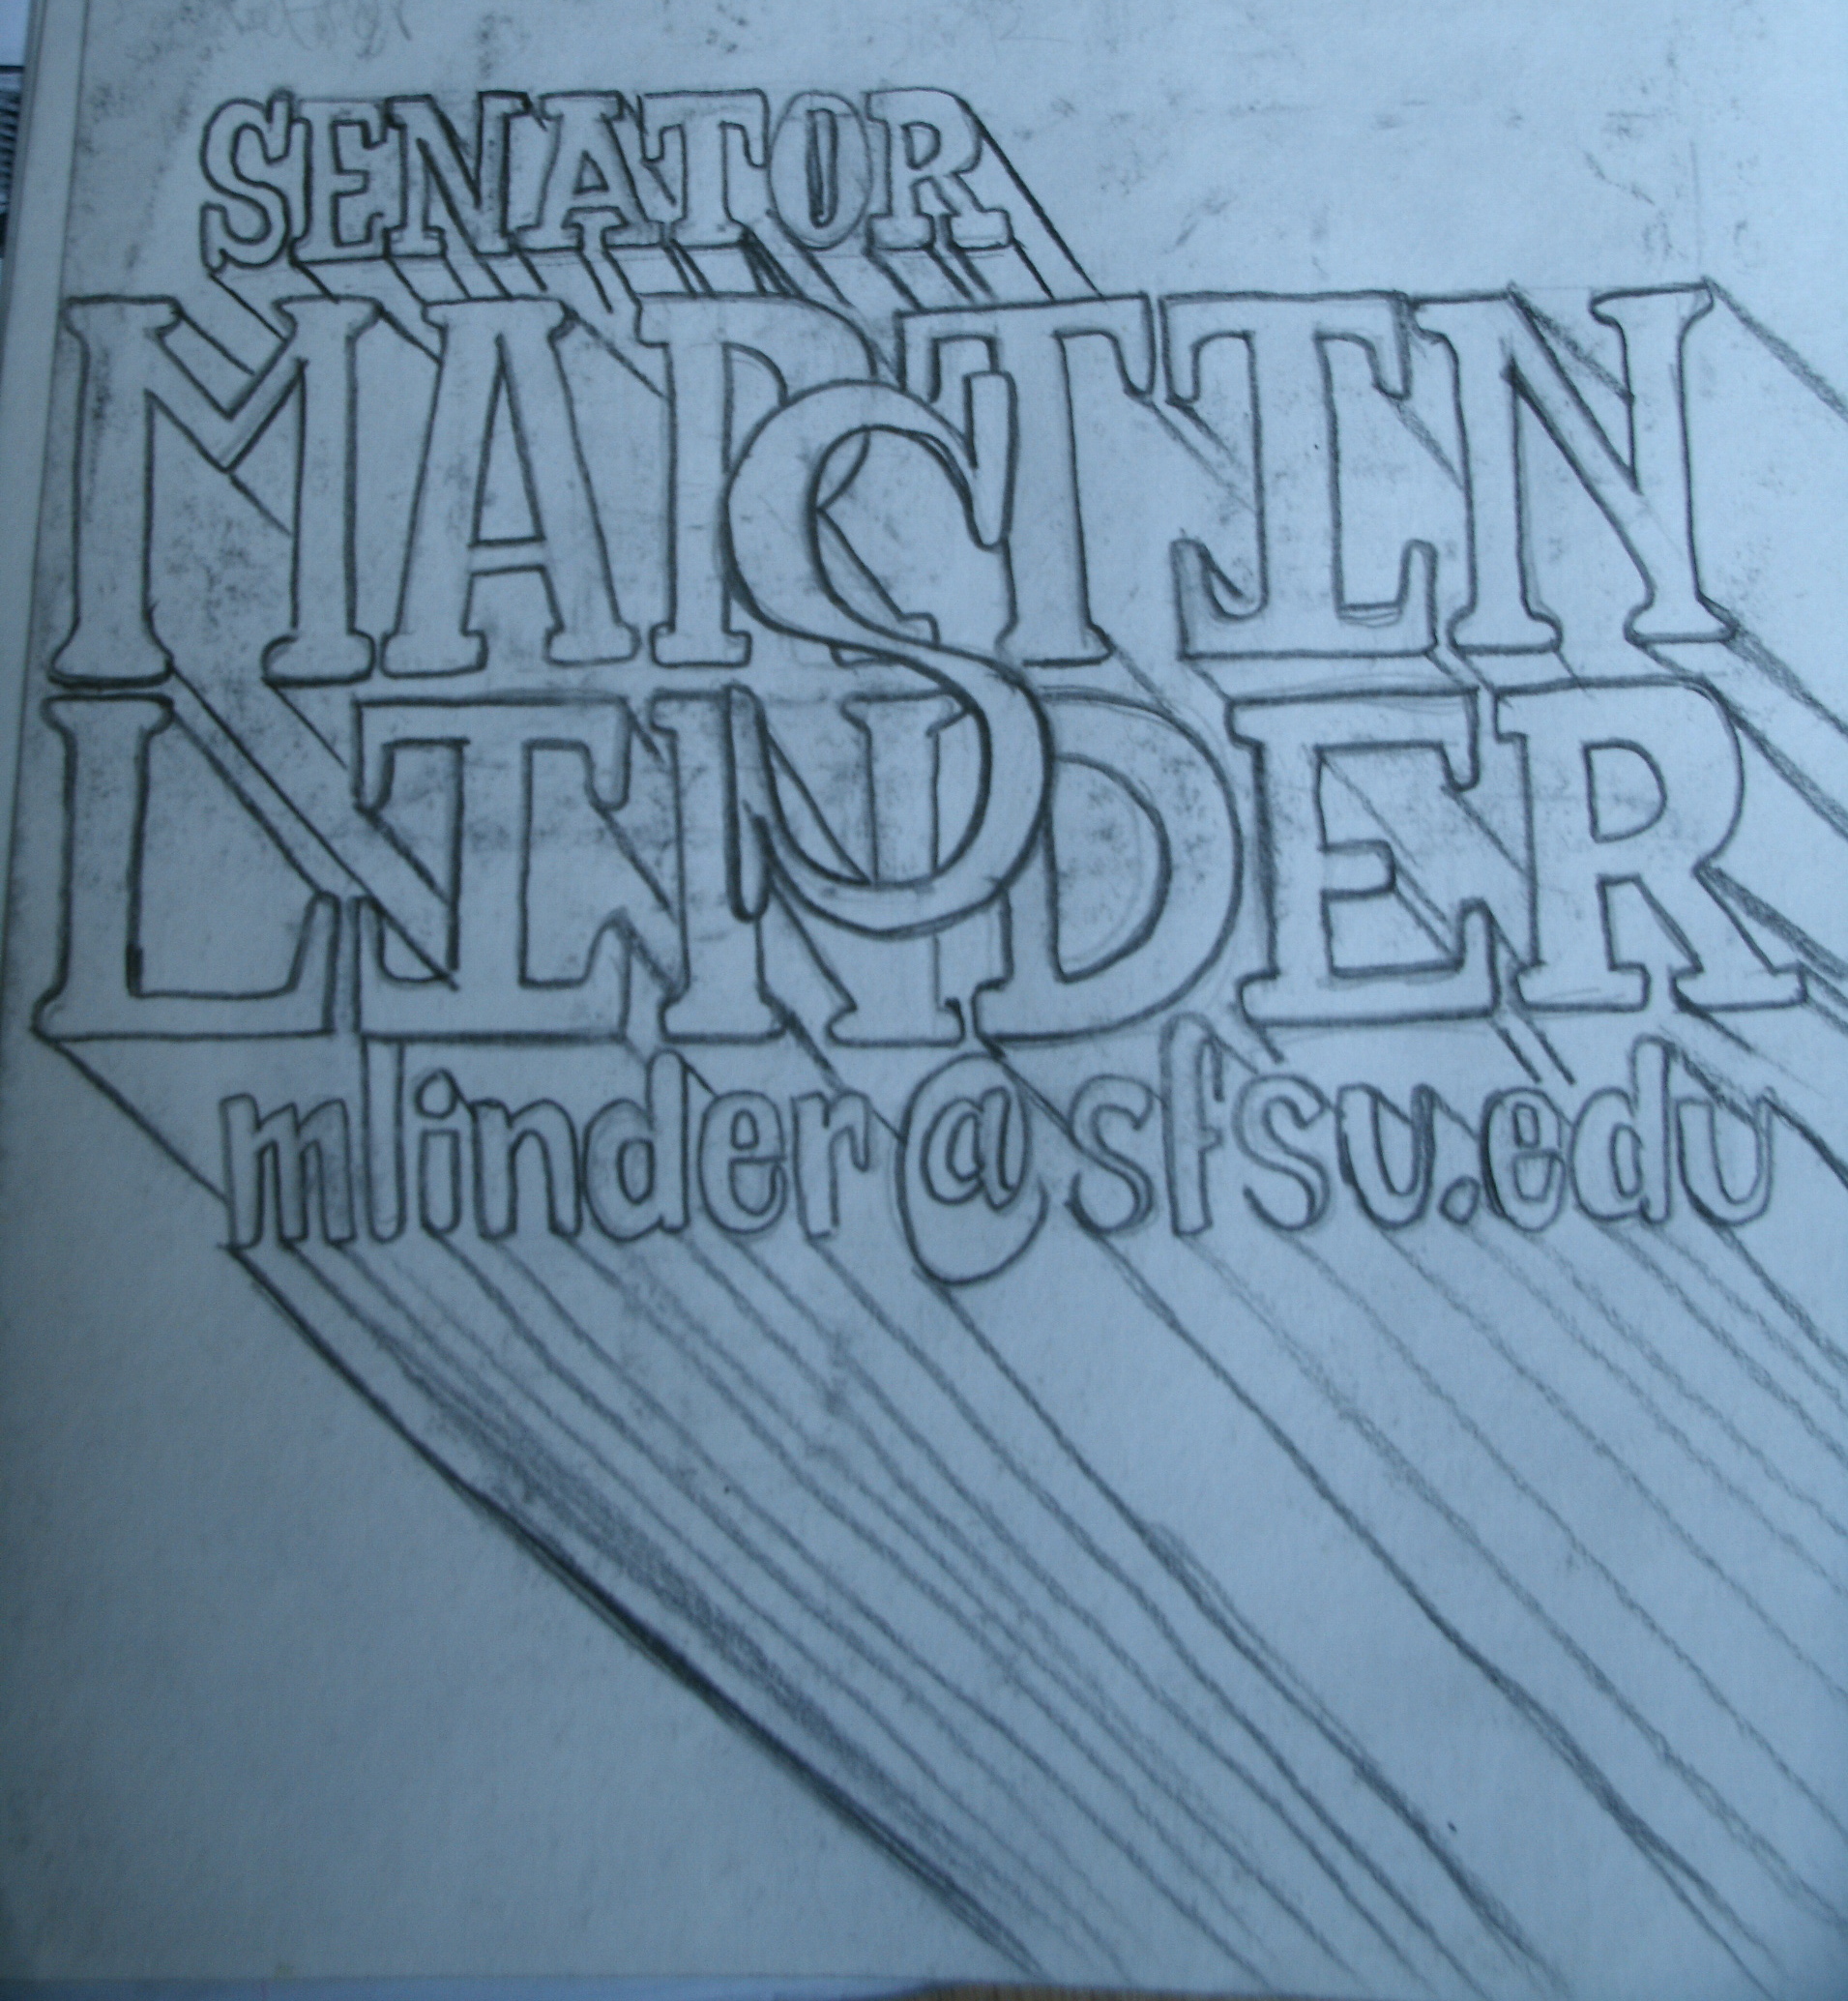 SENATOR
MARTIN
S
LINDER
mlinder@sfsu.edu